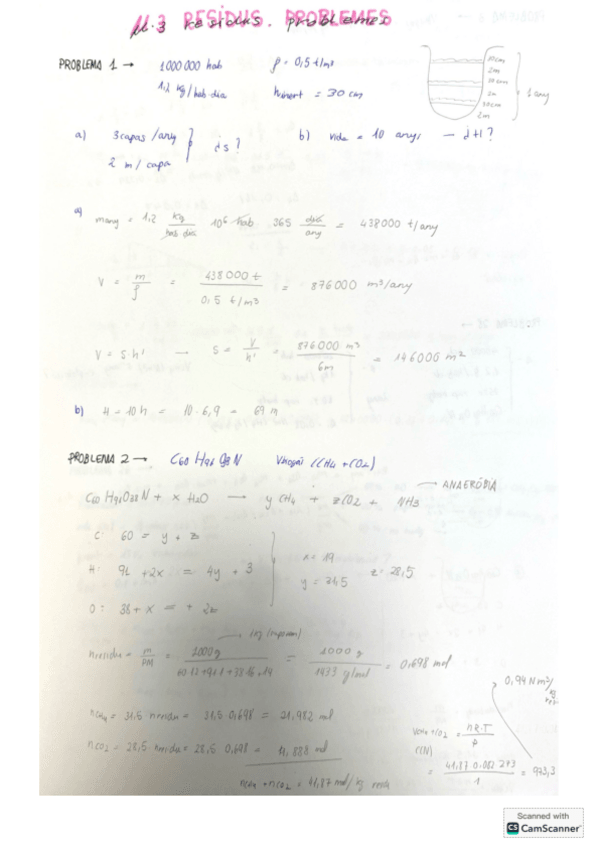 U.3 RESIDUS. PROBLEMES
PROBLEMA 1 → 1000000 hab ρ = 0,5 t/m³
1,2 kg/hab dia hinert = 30 cm
30cm
2m
30cm
2m
30cm
2m
1 any
a) 3 capas /any
2 m / capa
¿S?
b) vida = 10 anys — ¿H?
a) m any = 1,2 kg/hab dia 10⁶ hab 365 dia/any = 438000 t/any
V = m/ρ = 438000 t / 0,5 t/m³ = 876000 m³/any
V = S h' → S = V/h' = 876000 m³ / 6m = 146000 m²
b) H = 10 h = 10 · 6,9 = 69 m
PROBLEMA 2 → C60 H94 O38 N (CH4 + CO2)
→ ANAERÒBIA
C60 H94 O38 N + x H2O → y CH4 + z CO2 + NH3
C: 60 = y + z
H: 94 + 2x = 4y + 3
O: 38 + x = + 2z
x = 19
y = 31,5
z = 28,5
n residu = m/PM = 1000 g / 60·12+94·1+38·16+14 = 1000 g / 1433 g/mol = 0,698 mol
0,94 N m³/kg
nCH4 = 31,5 n residu = 31,5 0,698 = 21,982 mol
nCO2 = 28,5 n residu = 28,5 0,698 = 19,888 mol
nCH4 + nCO2 = 41,87 mol/kg
VCH4 + CO2 = n R·T / P
(CN)
= 41,87 0,082 273 / 1 = 937,3
Scanned with
CS CamScanner